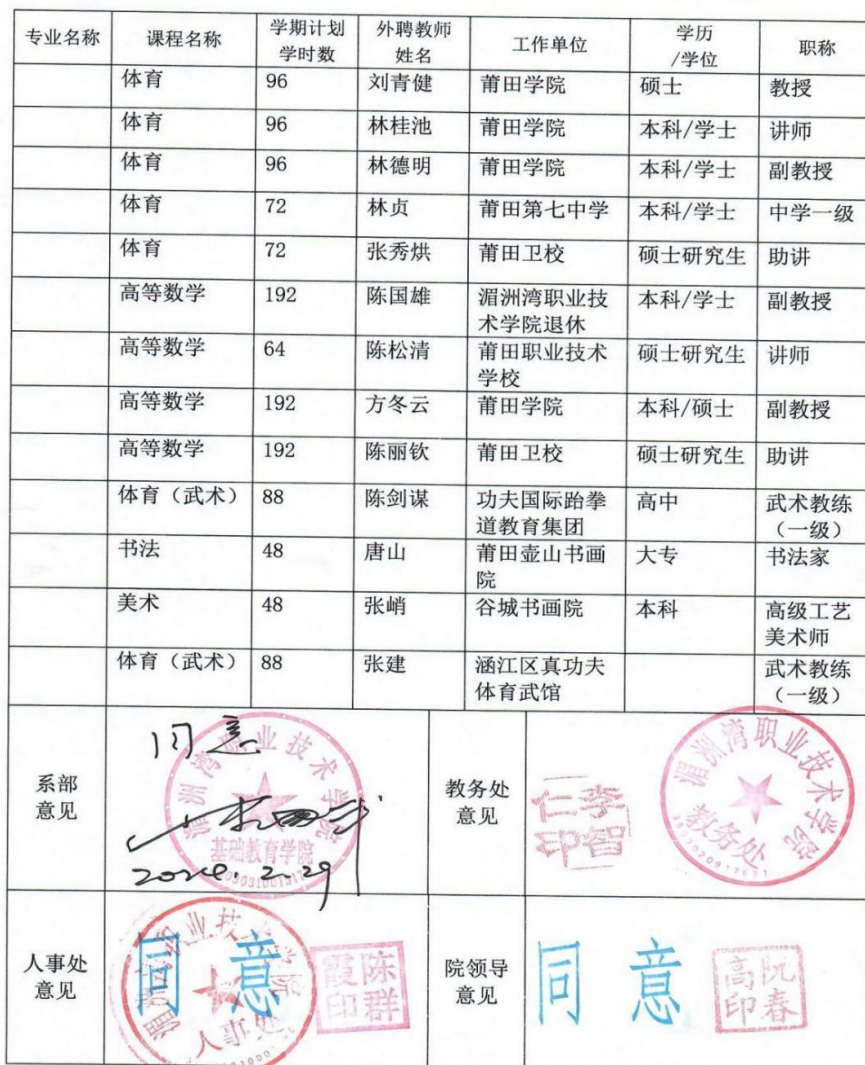 专业名称 课程名称 学期计划学时数 外聘教师姓名 工作单位 学历/学位 职称
体育 96 刘青健 莆田学院 硕士 教授
体育 96 林桂池 莆田学院 本科/学士 讲师
体育 96 林德明 莆田学院 本科/学士 副教授
体育 72 林贞 莆田第七中学 本科/学士 中学一级
体育 72 张秀烘 莆田卫校 硕士研究生 助讲
高等数学 192 陈国雄 湄洲湾职业技术学院退休 本科/学士 副教授
高等数学 64 陈松清 莆田职业技术学校 硕士研究生 讲师
高等数学 192 方冬云 莆田学院 本科/硕士 副教授
高等数学 192 陈丽钦 莆田卫校 硕士研究生 助讲
体育（武术） 88 陈剑谋 功夫国际跆拳道教育集团 高中 武术教练（一级）
书法 48 唐山 莆田壶山书画院 大专 书法家
美术 48 张峭 谷城书画院 本科 高级工艺美术师
体育（武术） 88 张建 涵江区真功夫体育武馆 武术教练（一级）
系部意见
同意
湄洲湾职业技术学院
基础教育学院
2.29
教务处意见
李智仁印
湄洲湾职业技术学院
教务处
人事处意见
同意
湄洲湾职业技术学院
人事处
陈群霞印
院领导意见
同意
阮春高印